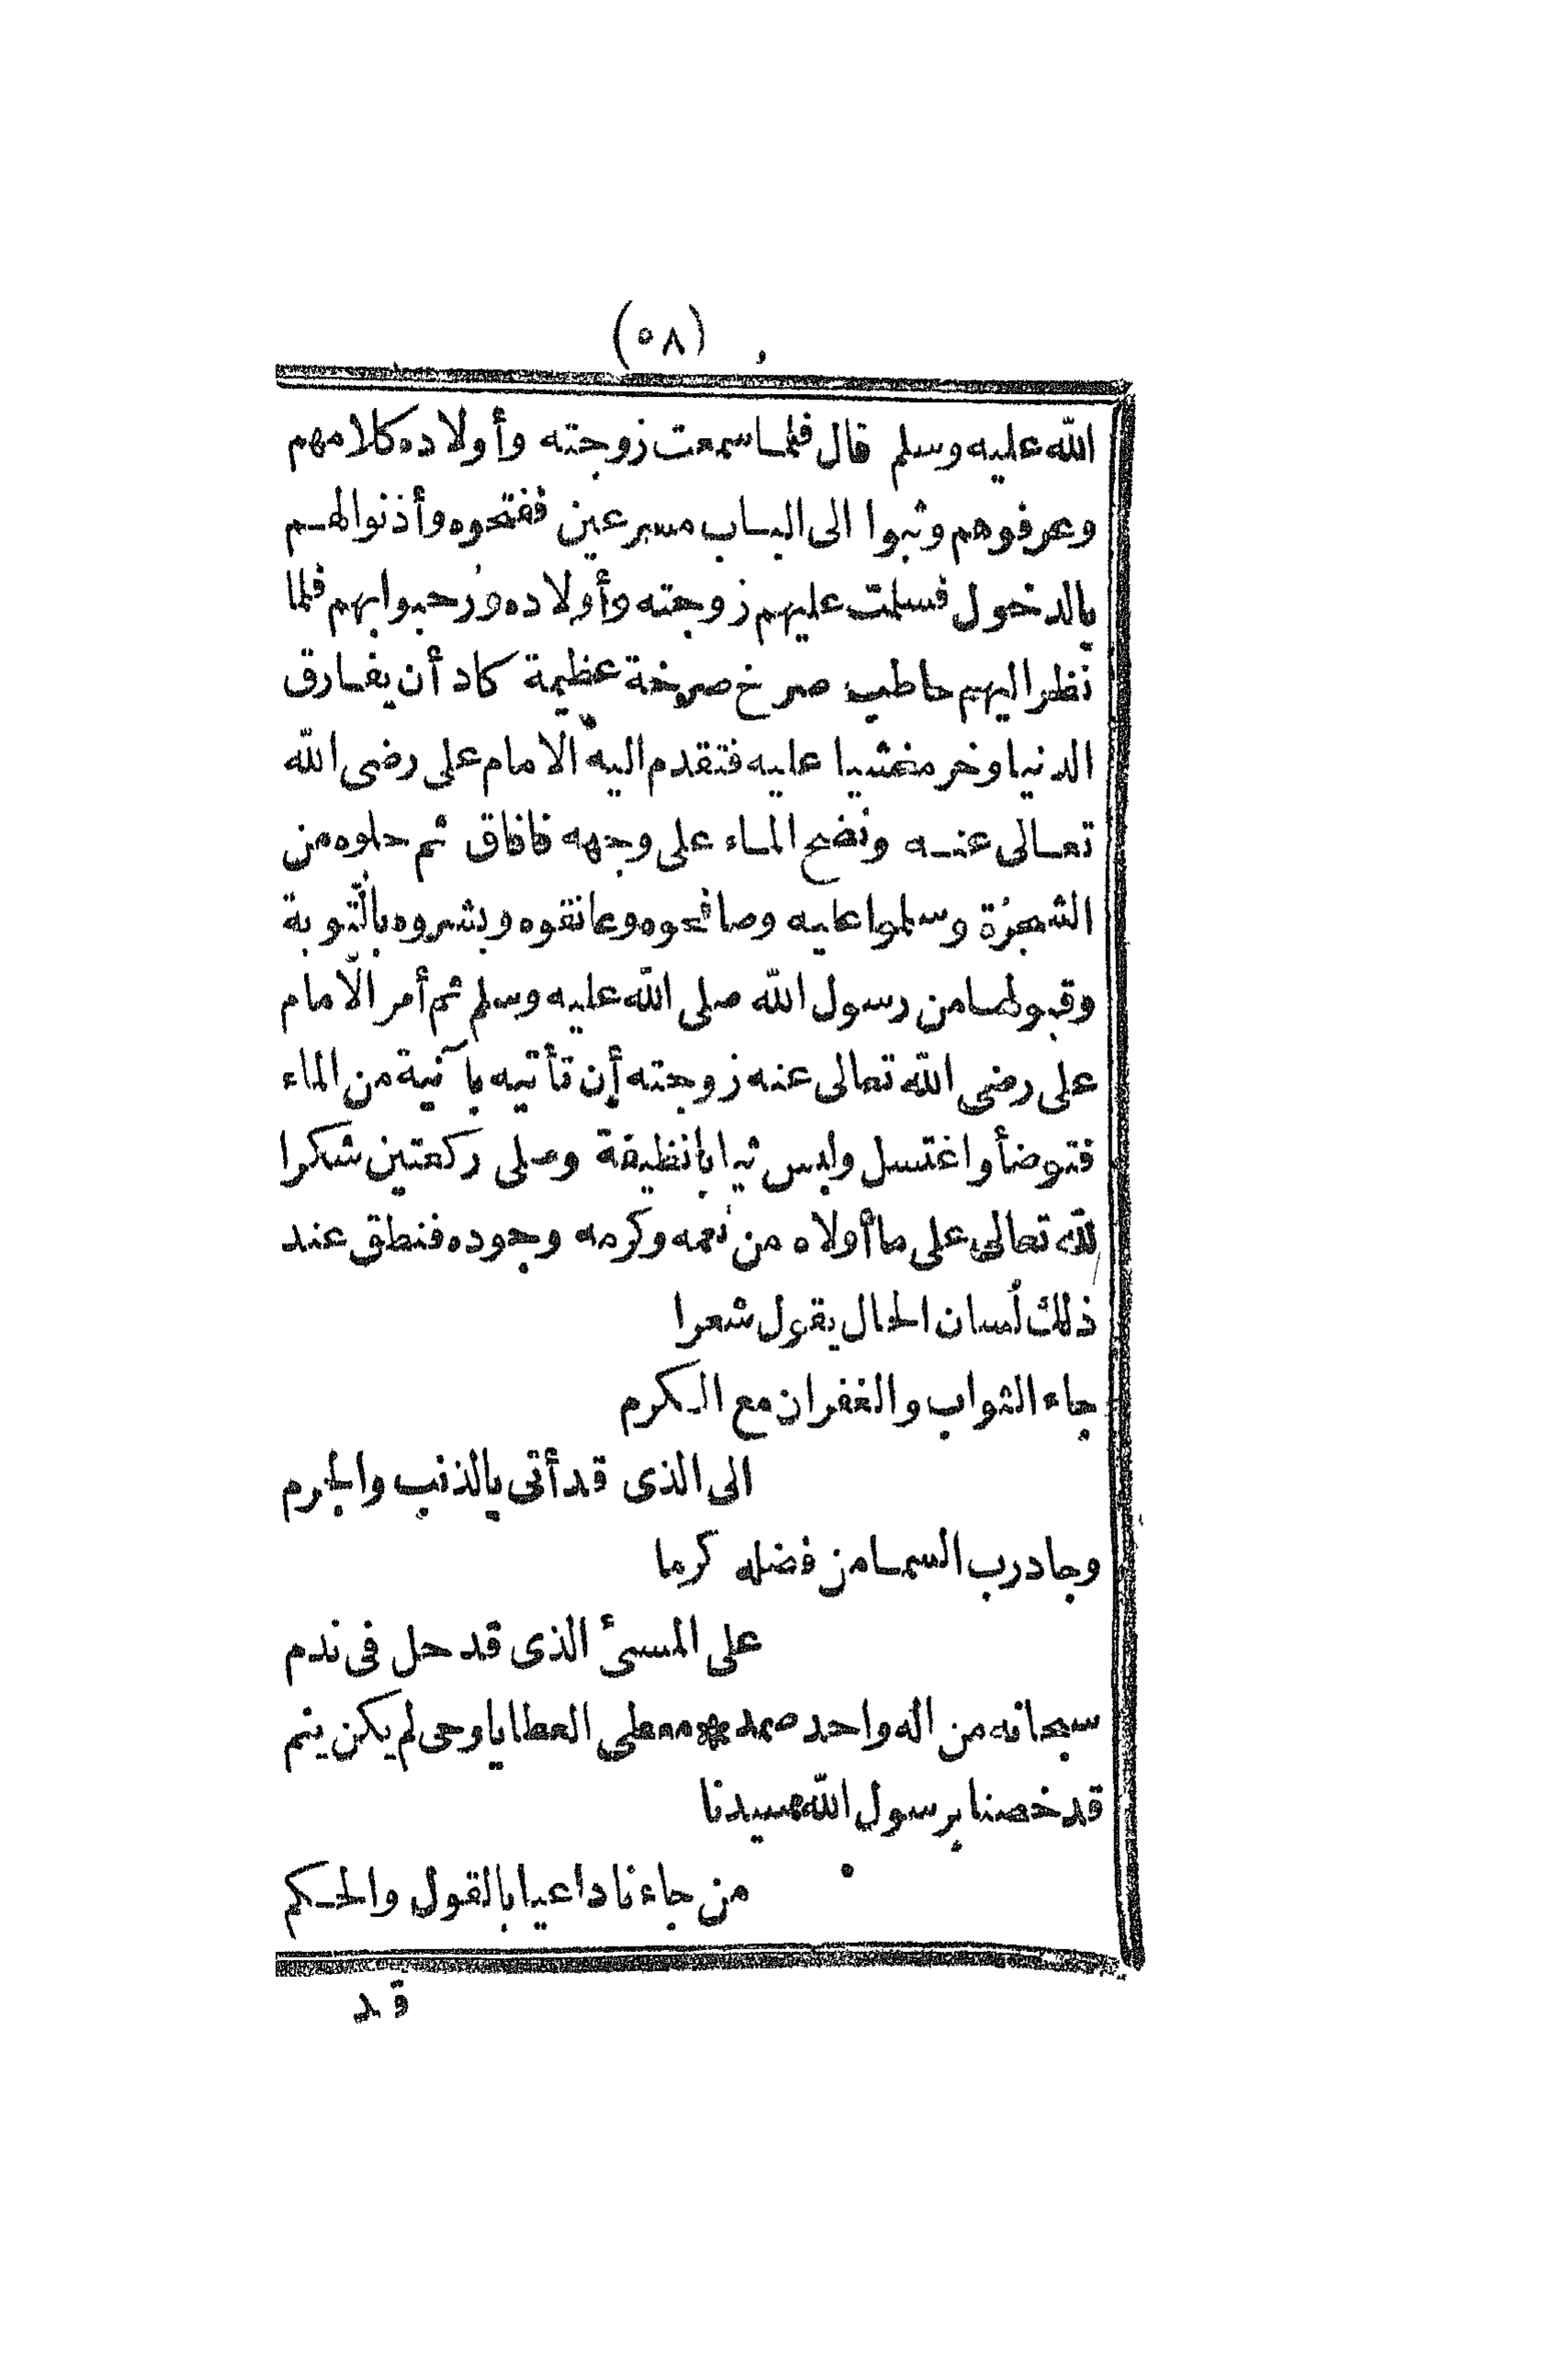 (٥٨)
الله عليه وسلم قال فلما سمعت زوجته وأولاده كلامهم
وعرفوهم وثبوا الى الباب مسرعين ففتحوه وأذنوا لهم
بالدخول فسلمت عليهم زوجته وأولاده ورحبوا بهم فلما
نظر اليهم حاطب صرخ صرخة عظيمة كاد أن يفارق
الدنيا وخر مغشيا عليه فتقدم اليه الامام على رضى الله
تعالى عنه ونضح الماء على وجهه فافاق ثم حلوه من
الشجرة وسلموا عليه وصافحوه وعانقوه وبشروه بالتوبة
وقبولها من رسول الله صلى الله عليه وسلم ثم أمر الامام
على رضى الله تعالى عنه زوجته أن تأتيه بآنية من الماء
فتوضأ واغتسل ولبس ثيابا نظيفة وصلى ركعتين شكرا
لله تعالى على ما أولاه من نعمه وكرمه وجوده فنطق عند
ذلك لسان الحال يقول شعرا
جاء الثواب والغفران مع الكرم
الى الذى قد أتى بالذنب والجرم
وجاد رب السما من فضله كرما
على المسئ الذى قد حل فى ندم
سبحانه من اله واحد صمد * معطى العطايا وحى لم يكن ينم
قد خصنا برسول الله سيدنا
من جاءنا داعيا بالقول والحكم
قد